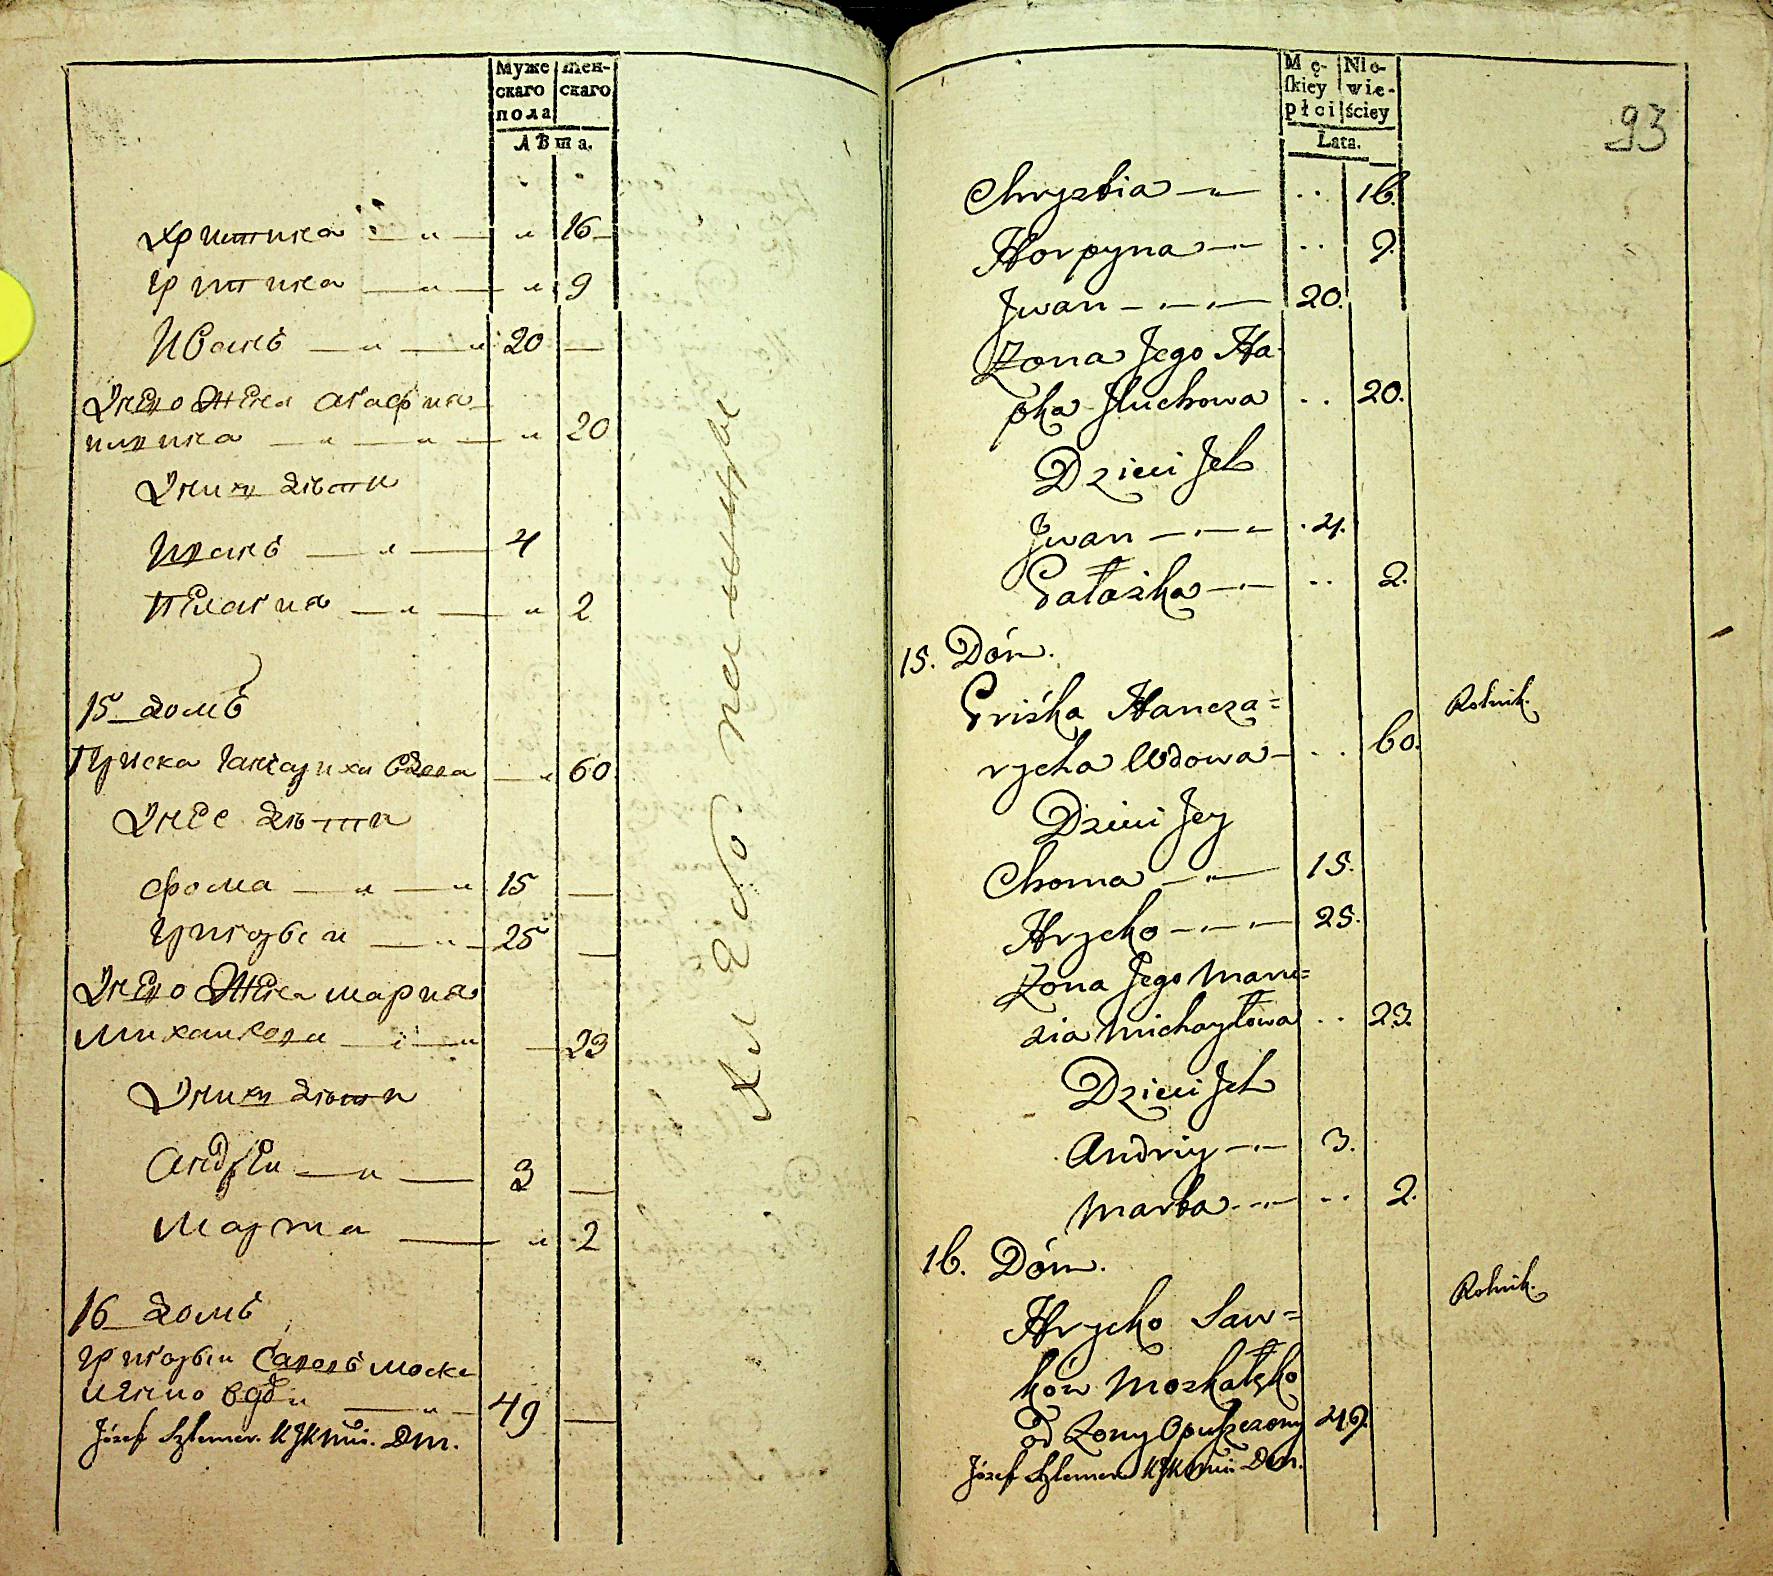 Муже
скаго
пола
жен-
скаго
Лѣта.
Христина 16
Ірина 9
Иванъ 20
Унего Жена Агафиа
илина 20
Униху дѣти
Иванъ 4
Пелагия 2
15 домъ
Приска Ганчариха вдова 60
Унее дѣти
Фома 15
Григорѣи 25
Унего Жена мария
Михаилова 23
Униху дѣти
Андреи 3
Марта 2
16 домъ
Григорѣи Савовъ моска
49
Józef Szlemer. KJKMći. Dm.
93
Mę-
ſkiey
płci
Nie-
wie-
ściey
Lata.
Chryzbia 16.
Horpyna 9.
Jwan 20.
Żona Jego Ha-
pka Jluchowa 20.
Dzieci Jch
Jwan 4.
Pałażka 2.
15. Dóm.
Priśka Hancza=
rycha Wdowa 60.
Rolnik.
Dzieci Jey
Choma 15.
Hryćko 25.
Żona Jego Maru=
sia Michayłowa 23.
Dzieci Jch
Andriy 3.
Marta 2.
16. Dóm.
Hryćko Saw=
ków Moskałyko
od Żony Opuszczony 49.
Rolnik.
Józef Szlemer KJKMći Dm.